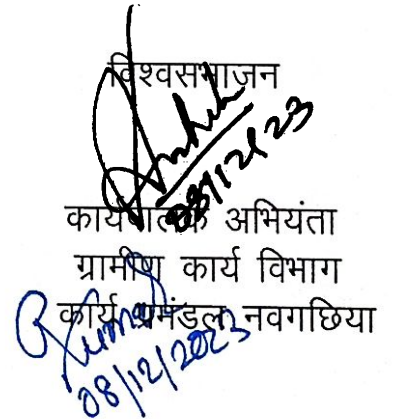 विश्वसभाजन
08/12/23
कार्यपालक अभियंता
ग्रामीण कार्य विभाग
कार्य प्रमंडल, नवगछिया
08/12/2023